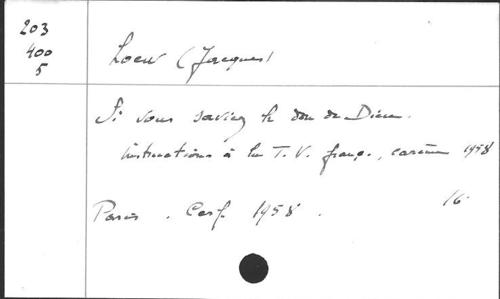 203
400
5
Loew (Jacques)
Si vous saviez le don de Dieu.
Instructions à la T.V. franç., carême 1958
Paris. Cerf. 1958. 16